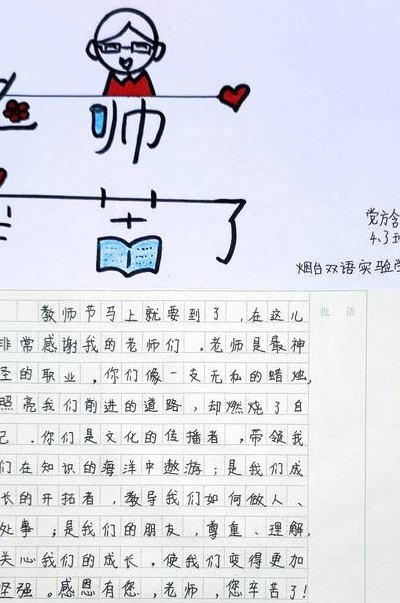 师
了
党方
4.3班
烟台双语实验学
批 语
教师节马上就要到了,在这儿
非常感谢我的老师们。老师是最神
圣的职业,你们像一支无私的蜡烛,
照亮我们前进的道路,却燃烧了自
己。你们是文化的传播者,带领我
们在知识的海洋中遨游;是我们成
长的开拓者,教导我们如何做人、
处事;是我们的朋友,尊重、理解,
关心我们的成长,使我们变得更加
坚强。感恩有您,老师,您辛苦了!